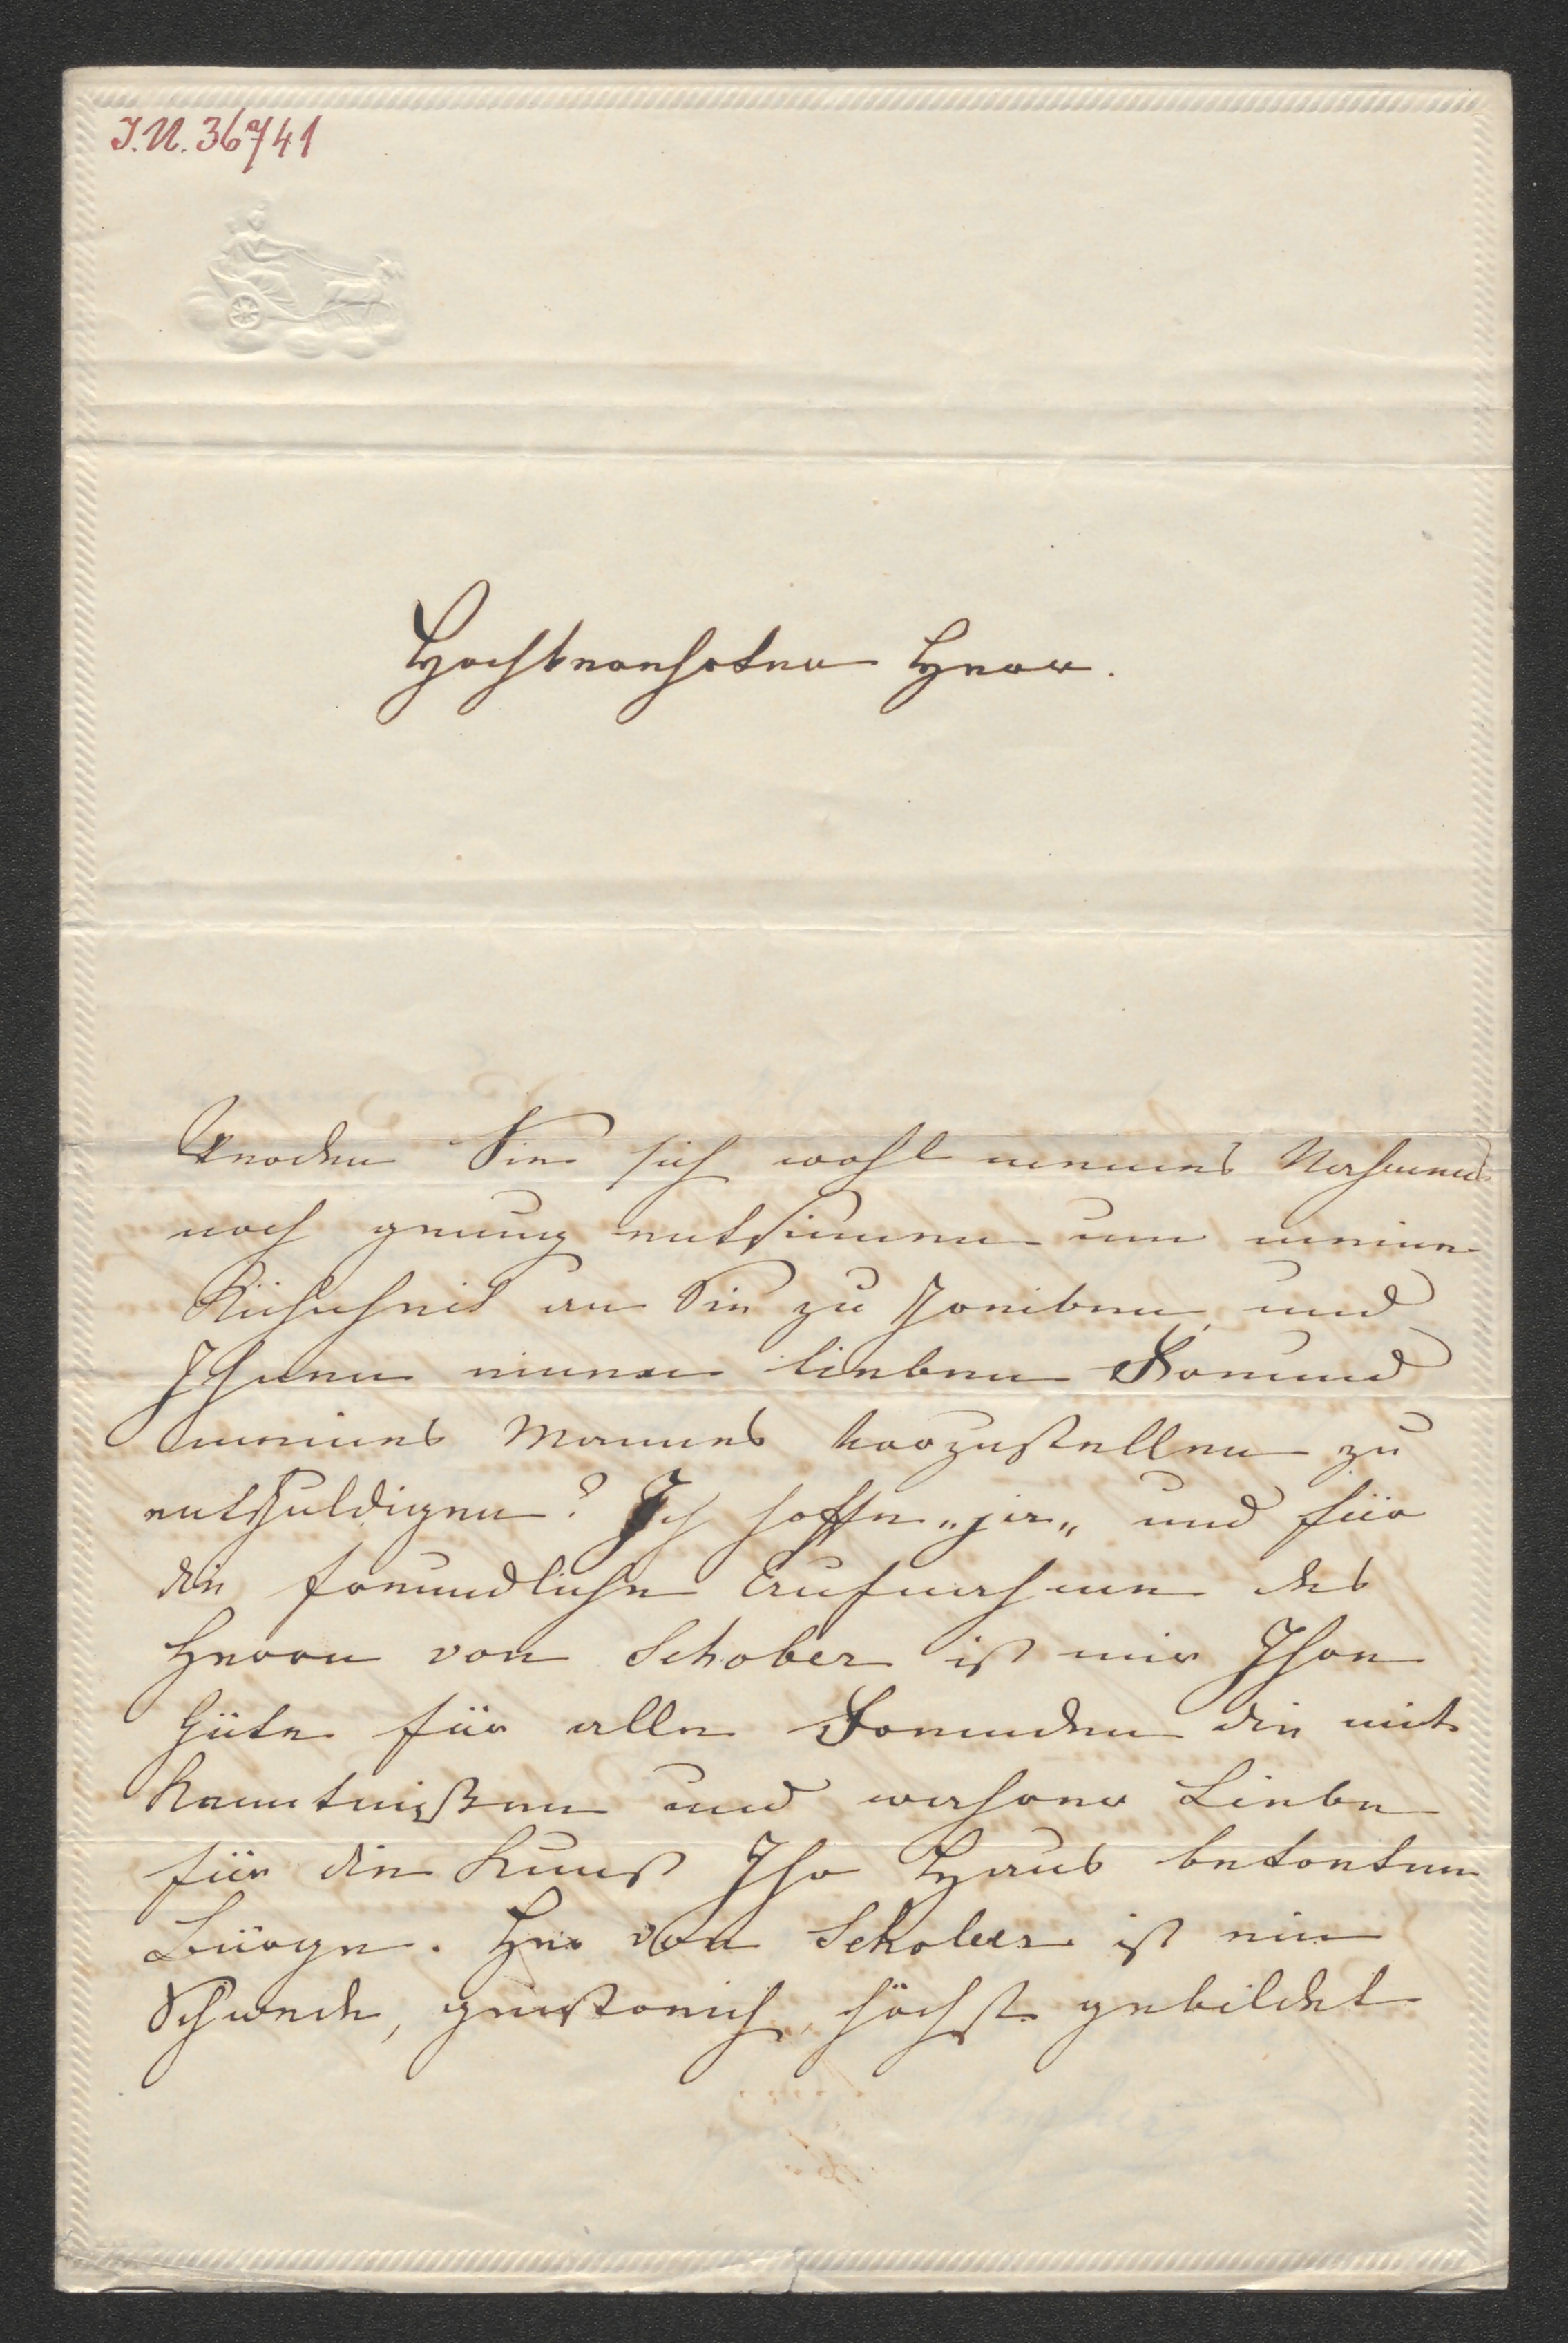 I.N. 36741
Hochverehrter Herr.
Werden Sie sich wohl meines Nahmens
noch genug entsinnen um meine
Kühnheit an Sie zu schreiben, und
Ihnen einen lieben Freund
meines Mannes vorzustellen zu
entschuldigen? Ich hoffe „ja„ und für
die freundliche Aufnahme des
Herrn von Schober ist mir Ihre
Güte für alle Fremden die mit
Kenntnißen und wahrer Liebe
für die Kunst Ihr Haus betreten
Bürge. Herr von Schober ist ein
Schwede, geistreich, höchst gebildet